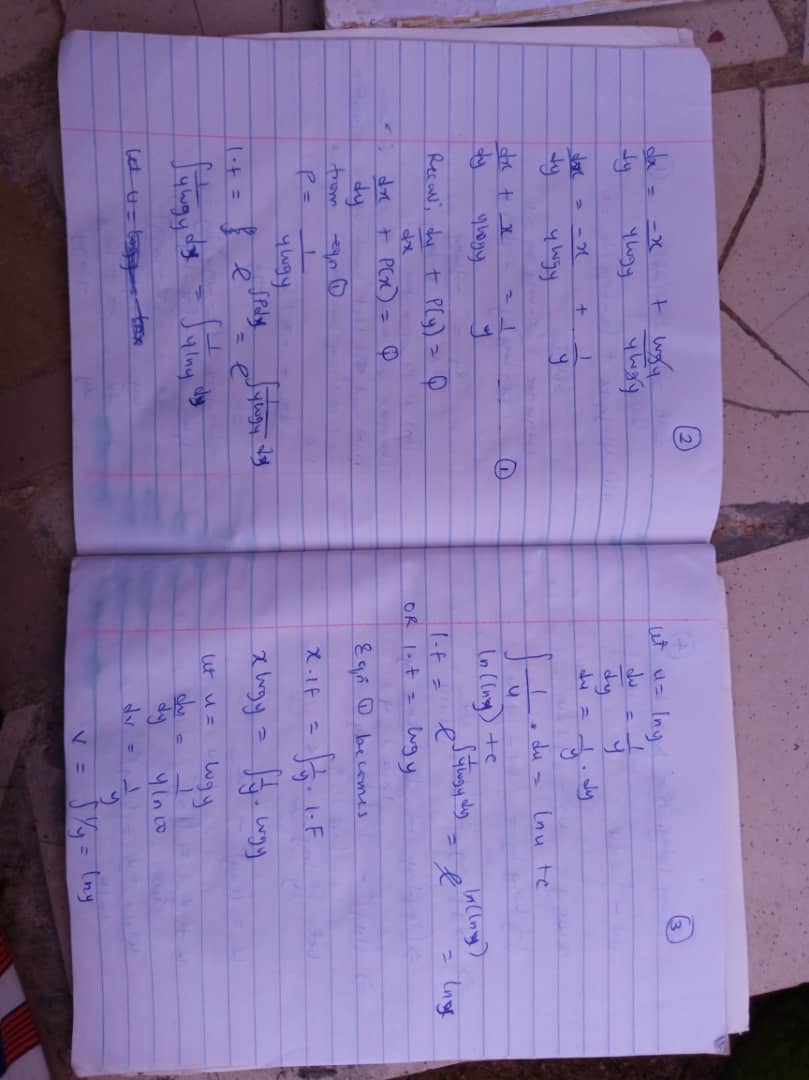 ②
dx/dy = -x/ylogy + logy/ylogy
dx/dy = -x/ylogy + 1/y
dx/dy + x/ylogy = 1/y ①
Recall, dy/dx + P(y) = Q
∴ dx/dy + P(x) = Q
from eqn ①
P = 1/ylogy
I.F = e^∫Pdy = e^∫1/ylogy dy
∫1/ylogy dy = ∫1/ylny dy
Let u =
③
Let u = lny
du/dy = 1/y
du = 1/y . dy
∫1/u . du = lnu + c
ln(lny) + c
I.F = e^∫1/ylogy dy = e^ln(lny) = lny
OR I.F = logy
Eqn ① becomes
x . IF = ∫1/y . I.F
x logy = ∫1/y . logy
Let u = logy
du/dy = 1/yln10
dv = 1/y
v = ∫1/y = lny